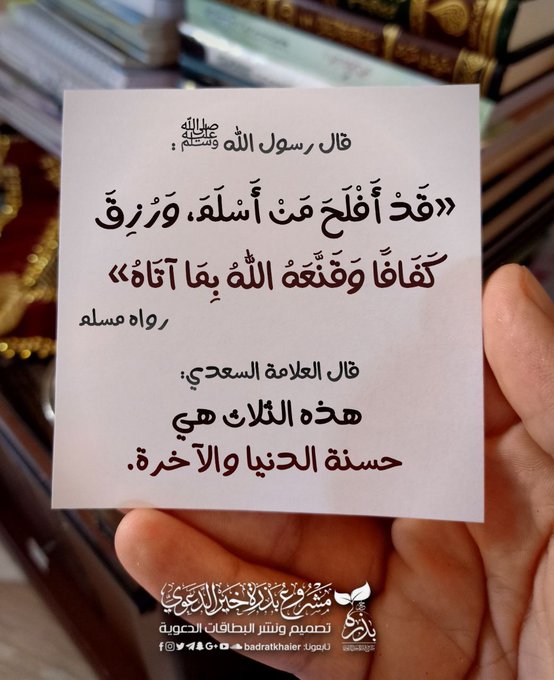 قال رسول الله ﷺ :
«قَدْ أَفْلَحَ مَنْ أَسْلَمَ، وَرُزِقَ
كَفَافًا وَقَنَّعَهُ اللهُ بِمَا آتَاهُ»
رواه مسلم
قال العلامة السعدي:
هذه الثلاث هي
حسنة الدنيا والآخرة.
مشروع بذرة خير الدعوي
تصميم ونشر البطاقات الدعوية
تابعونا: badratkhaier
بذرة